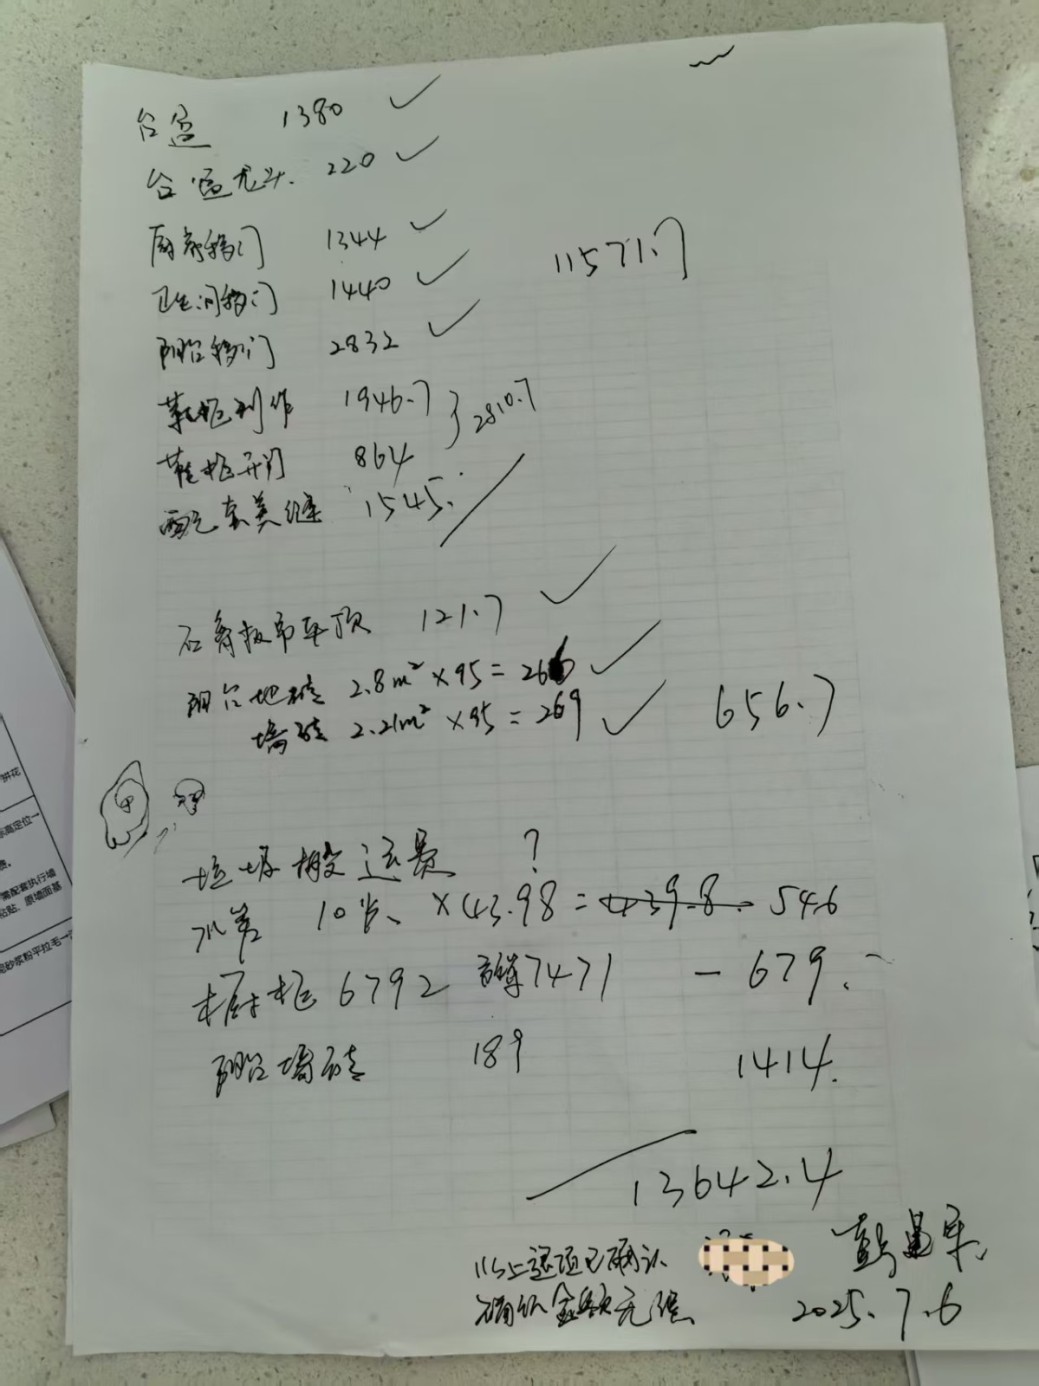 台盆 1380
台盆龙头. 220
厨房移门 1344
卫生间移门 1440
11571.7
阳台移门 2832
鞋柜制作 1946.7
2810.7
鞋柜开门 864
配套美缝 1545.
石膏板吊平顶 121.7
阳台地砖 2.8m²×95=266
墙砖 2.21m²×95=269
656.7
垃圾搬运费 ?
水管 10米、×43.98=439.8. 546
橱柜 6792 7471 -679.
阳台墙砖 189 1414.
13642.4
以上退项已确认
确认金额无误
2025.7.6